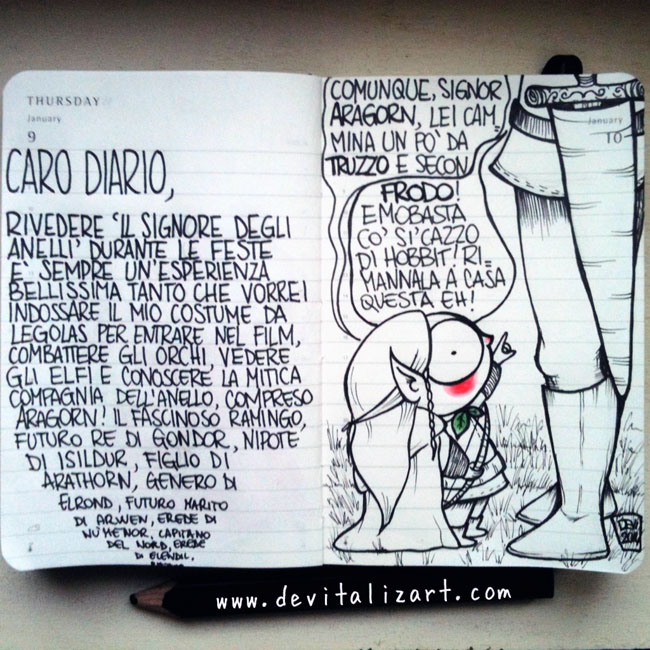 THURSDAY
January
9
CARO DIARIO,
RIVEDERE 'IL SIGNORE DEGLI
ANELLI' DURANTE LE FESTE
E' SEMPRE UN'ESPERIENZA
BELLISSIMA TANTO CHE VORREI
INDOSSARE IL MIO COSTUME DA
LEGOLAS PER ENTRARE NEL FILM,
COMBATTERE GLI ORCHI, VEDERE
GLI ELFI E CONOSCERE LA MITICA
COMPAGNIA DELL'ANELLO, COMPRESO
ARAGORN! IL FASCINOSO RAMINGO,
FUTURO RE DI GONDOR, NIPOTE
DI ISILDUR, FIGLIO DI
ARATHORN, GENERO DI
ELROND, FUTURO MARITO
DI ARWEN, EREDE DI
NU'MENOR, CAPITANO
DEL NORD, EREDE
DI ELENDIL,
January
10
COMUNQUE, SIGNOR
ARAGORN, LEI CAM_
MINA UN PO' DA
TRUZZO E SECON
FRODO!
EMOBASTA
CO' SI'CAZZO
DI HOBBIT! RI_
MANNALA A CASA
QUESTA EH!
DEVI
2014
www.devitalizart.com